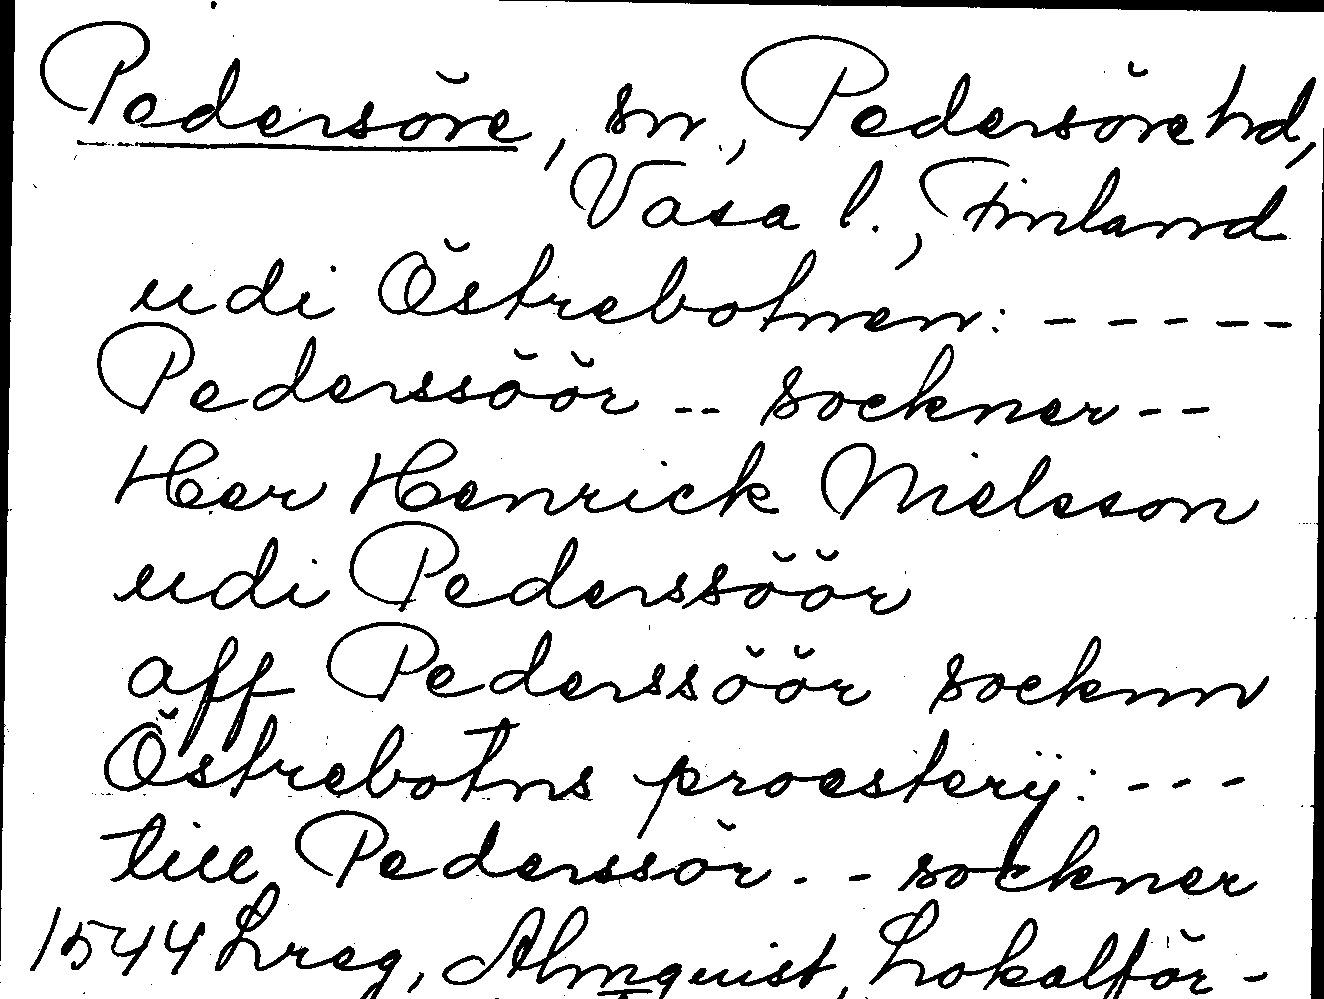 Pedersöre, sn, Pedersörehd,
Vasa l., Finland
udi Östrebotnen: - - - - -
Pederssöör -- sockner --
Her Henrick Nielsson
udi Pederssöör
aff Pederssöör socknn
Östrebotns proesterij: - - -
till Pederssör. - - sockner
1544 Lreg, Almquist, Lokalför-